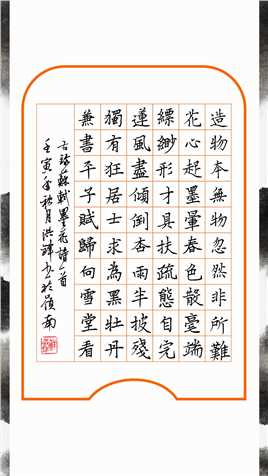 造物本無物忽然非所難
花心起墨暈春色散毫端
縹緲形才具扶疏態自完
蓮風盡傾倒杏雨半披殘
獨有狂居士求為黑牡丹
兼書平子賦歸向雪堂看
古詩蘇軾墨花詩一首
壬寅年秋月洪書於嶺南